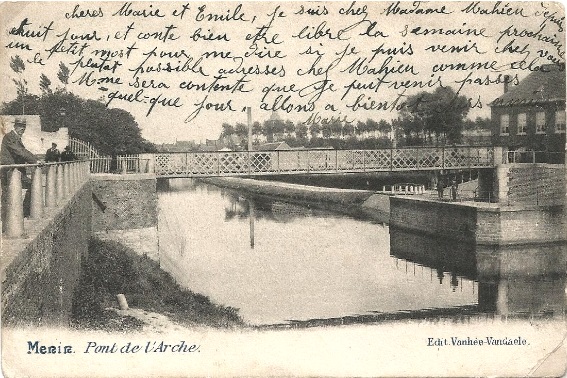 cheres Marie et Emile, je suis chez Madame Mahieu depis
huit jour, et conte bien etre libre la semaine prochaine
un petit most pour me dire si je puis venir chez vous
le platat possible adresses chez Mahieu comme cela
Mme sera contente que je peut venir passes
quel-que jour allons a bientot Marie
Menin. Pont de l'Arche.
Edit. Vanhée-Vandaele.